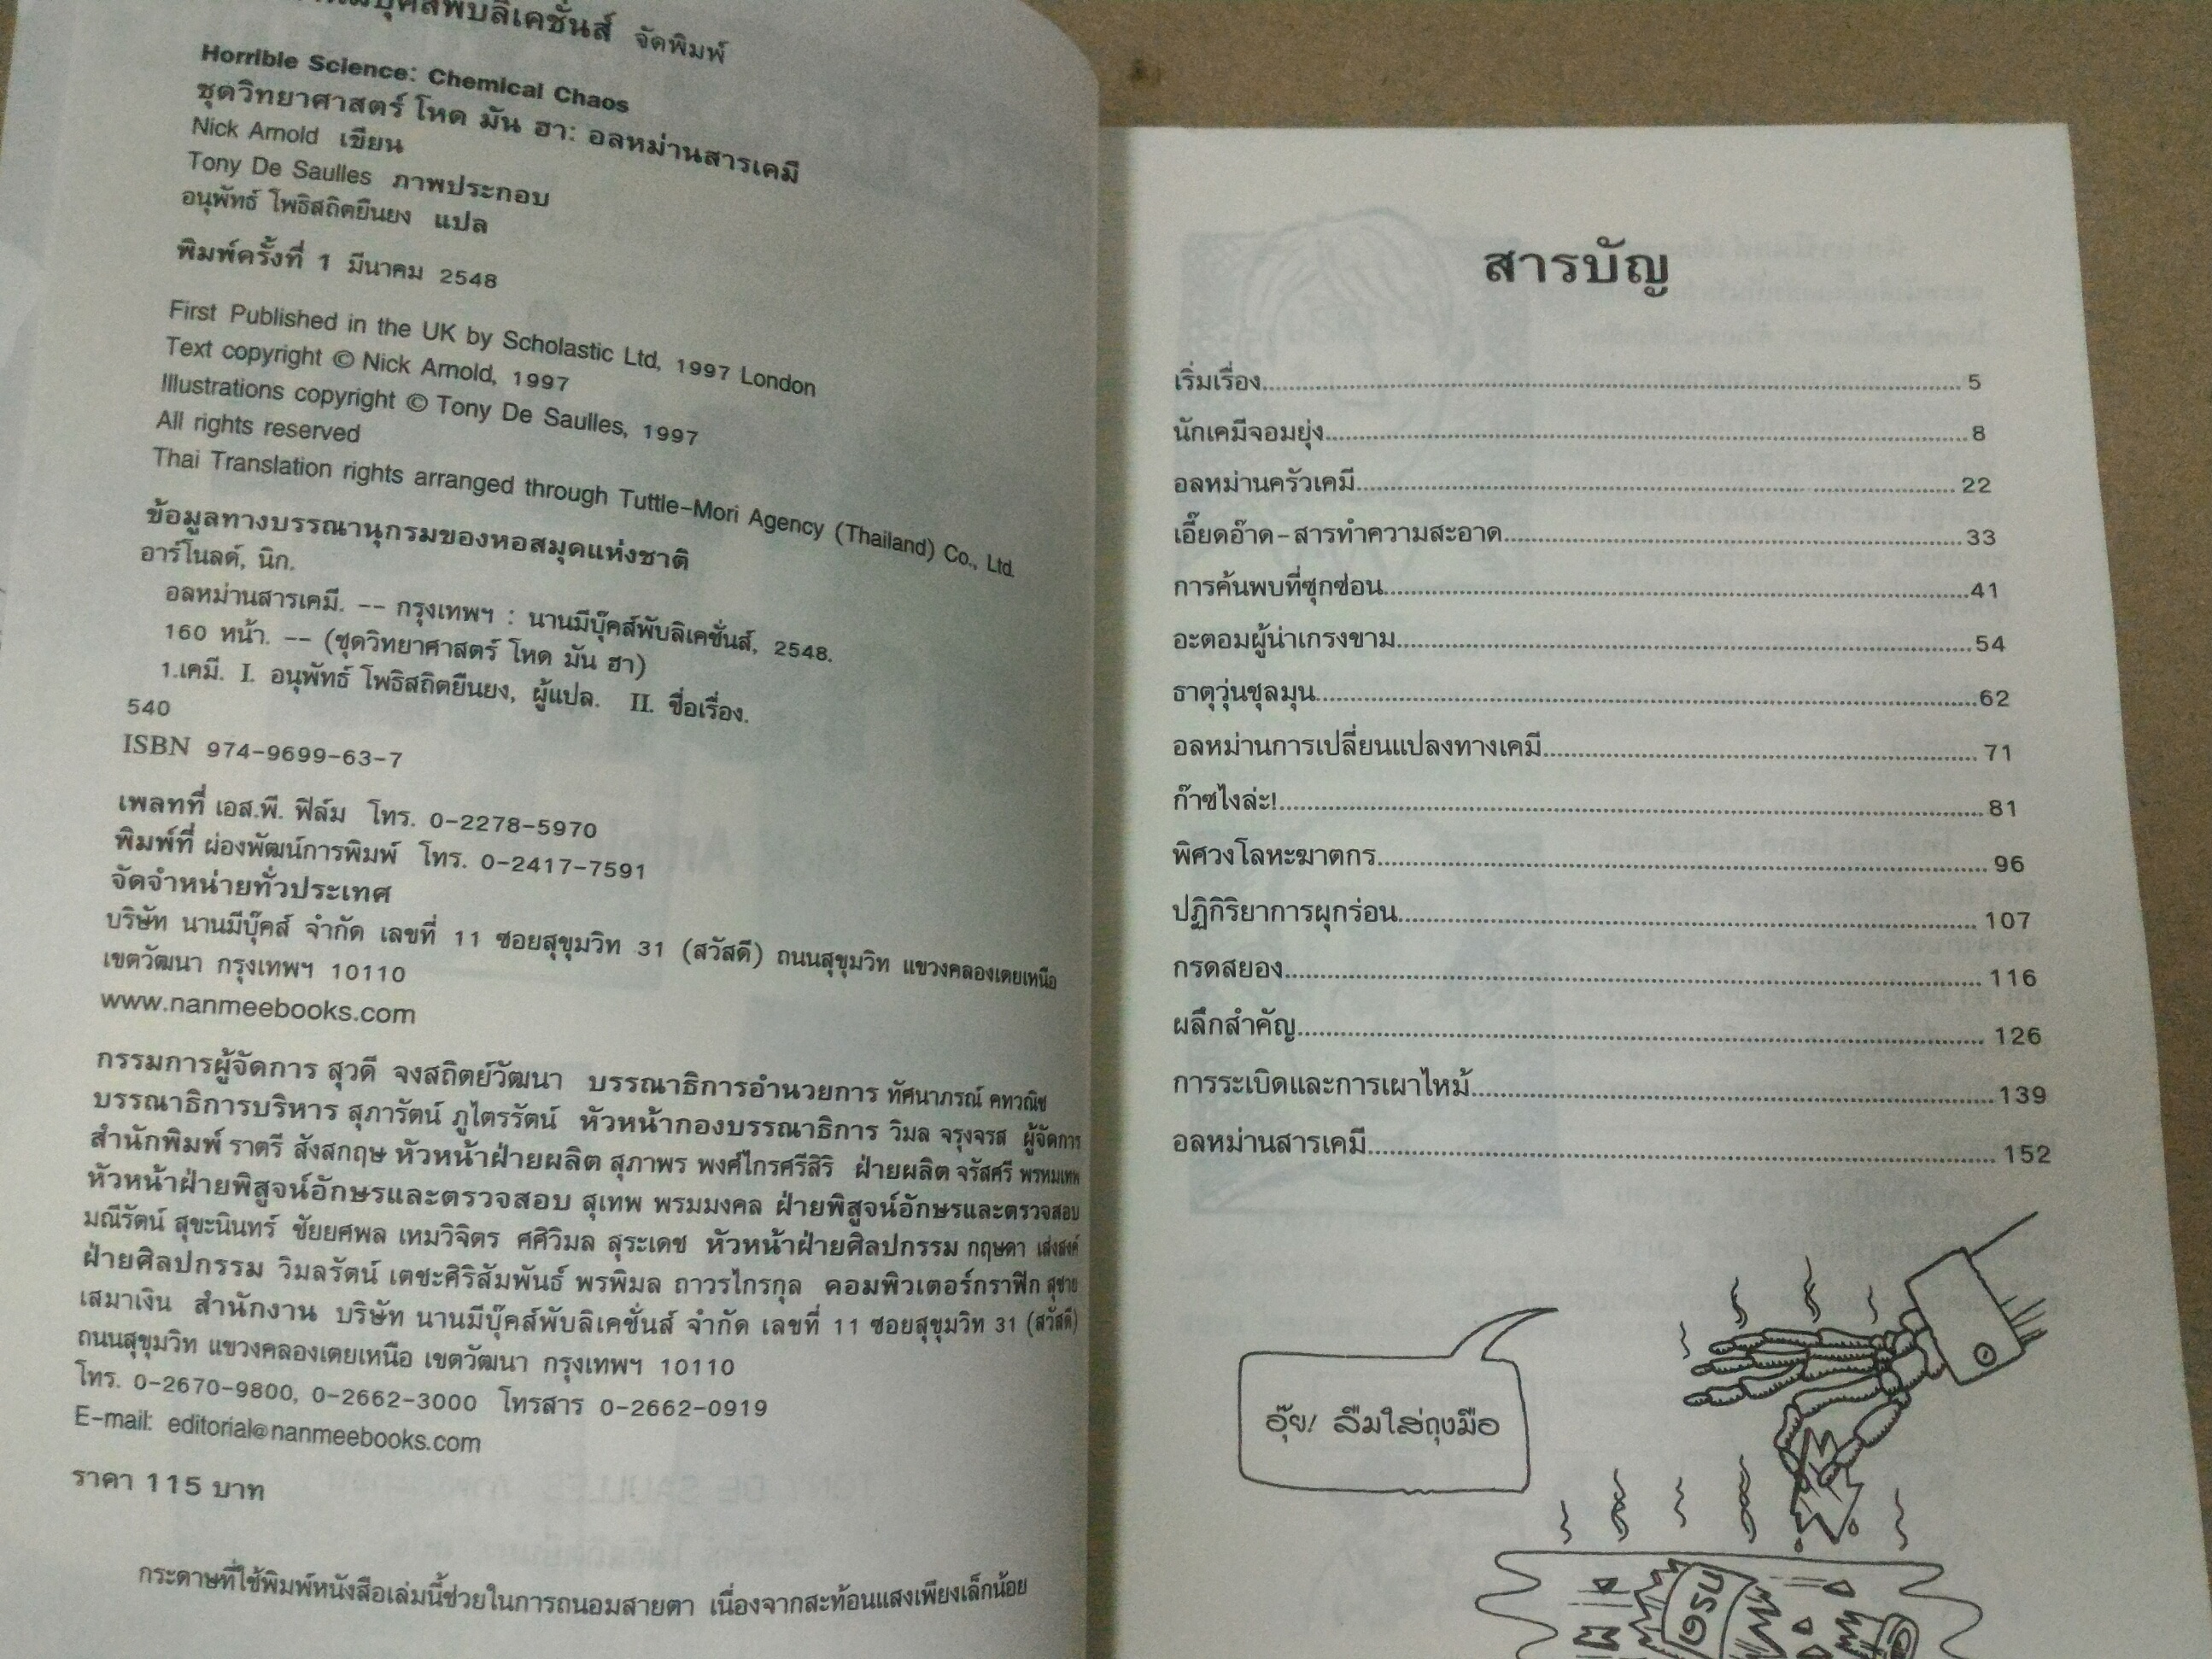 นานมีบุ๊คส์พับลิเคชั่นส์ จัดพิมพ์
Horrible Science: Chemical Chaos
ชุดวิทยาศาสตร์ โหด มัน ฮา: อลหม่านสารเคมี
Nick Arnold เขียน
Tony De Saulles ภาพประกอบ
อนุพัทธ์ โพธิสถิตยืนยง แปล
พิมพ์ครั้งที่ 1 มีนาคม 2548
First Published in the UK by Scholastic Ltd, 1997 London
Text copyright © Nick Arnold, 1997
Illustrations copyright © Tony De Saulles, 1997
All rights reserved
Thai Translation rights arranged through Tuttle-Mori Agency (Thailand) Co., Ltd.
ข้อมูลทางบรรณานุกรมของหอสมุดแห่งชาติ
อาร์โนลด์, นิก.
อลหม่านสารเคมี. -- กรุงเทพฯ : นานมีบุ๊คส์พับลิเคชั่นส์, 2548.
160 หน้า. -- (ชุดวิทยาศาสตร์ โหด มัน ฮา)
1.เคมี. I. อนุพัทธ์ โพธิสถิตยืนยง, ผู้แปล. II. ชื่อเรื่อง.
540
ISBN 974-9699-63-7
เพลทที่ เอส.พี. ฟิล์ม โทร. 0-2278-5970
พิมพ์ที่ ผ่องพัฒน์การพิมพ์ โทร. 0-2417-7591
จัดจำหน่ายทั่วประเทศ
บริษัท นานมีบุ๊คส์ จำกัด เลขที่ 11 ซอยสุขุมวิท 31 (สวัสดี) ถนนสุขุมวิท แขวงคลองเตยเหนือ
เขตวัฒนา กรุงเทพฯ 10110
www.nanmeebooks.com
กรรมการผู้จัดการ สุวดี จงสถิตย์วัฒนา บรรณาธิการอำนวยการ ทัศนาภรณ์ คทวณิช
บรรณาธิการบริหาร สุภารัตน์ ภูไตรรัตน์ หัวหน้ากองบรรณาธิการ วิมล จรุงจรส ผู้จัดการ
สำนักพิมพ์ ราตรี สังสกฤษ หัวหน้าฝ่ายผลิต สุภาพร พงศ์ไกรศรีสิริ ฝ่ายผลิต จรัสศรี พรหมเทพ
หัวหน้าฝ่ายพิสูจน์อักษรและตรวจสอบ สุเทพ พรมมงคล ฝ่ายพิสูจน์อักษรและตรวจสอบ
มณีรัตน์ สุขะนินทร์ ชัยยศพล เหมวิจิตร ศศิวิมล สุระเดช หัวหน้าฝ่ายศิลปกรรม กฤษดา เส่งสงค์
ฝ่ายศิลปกรรม วิมลรัตน์ เตชะศิริสัมพันธ์ พรพิมล ถาวรไกรกุล คอมพิวเตอร์กราฟิก สุชาย
เสมาเงิน สำนักงาน บริษัท นานมีบุ๊คส์พับลิเคชั่นส์ จำกัด เลขที่ 11 ซอยสุขุมวิท 31 (สวัสดี)
ถนนสุขุมวิท แขวงคลองเตยเหนือ เขตวัฒนา กรุงเทพฯ 10110
โทร. 0-2670-9800, 0-2662-3000 โทรสาร 0-2662-0919
E-mail: editorial@nanmeebooks.com
ราคา 115 บาท
กระดาษที่ใช้พิมพ์หนังสือเล่มนี้ช่วยในการถนอมสายตา เนื่องจากสะท้อนแสงเพียงเล็กน้อย
สารบัญ
เริ่มเรื่อง 5
นักเคมีจอมยุ่ง 8
อลหม่านครัวเคมี 22
เอี๊ยดอ๊าด-สารทำความสะอาด 33
การค้นพบที่ซุกซ่อน 41
อะตอมผู้น่าเกรงขาม 54
ธาตุวุ่นชุลมุน 62
อลหม่านการเปลี่ยนแปลงทางเคมี 71
ก๊าซไงล่ะ! 81
พิศวงโลหะฆาตกร 96
ปฏิกิริยาการผุกร่อน 107
กรดสยอง 116
ผลึกสำคัญ 126
การระเบิดและการเผาไหม้ 139
อลหม่านสารเคมี 152
อุ๊ย! ลืมใส่ถุงมือ
กรด